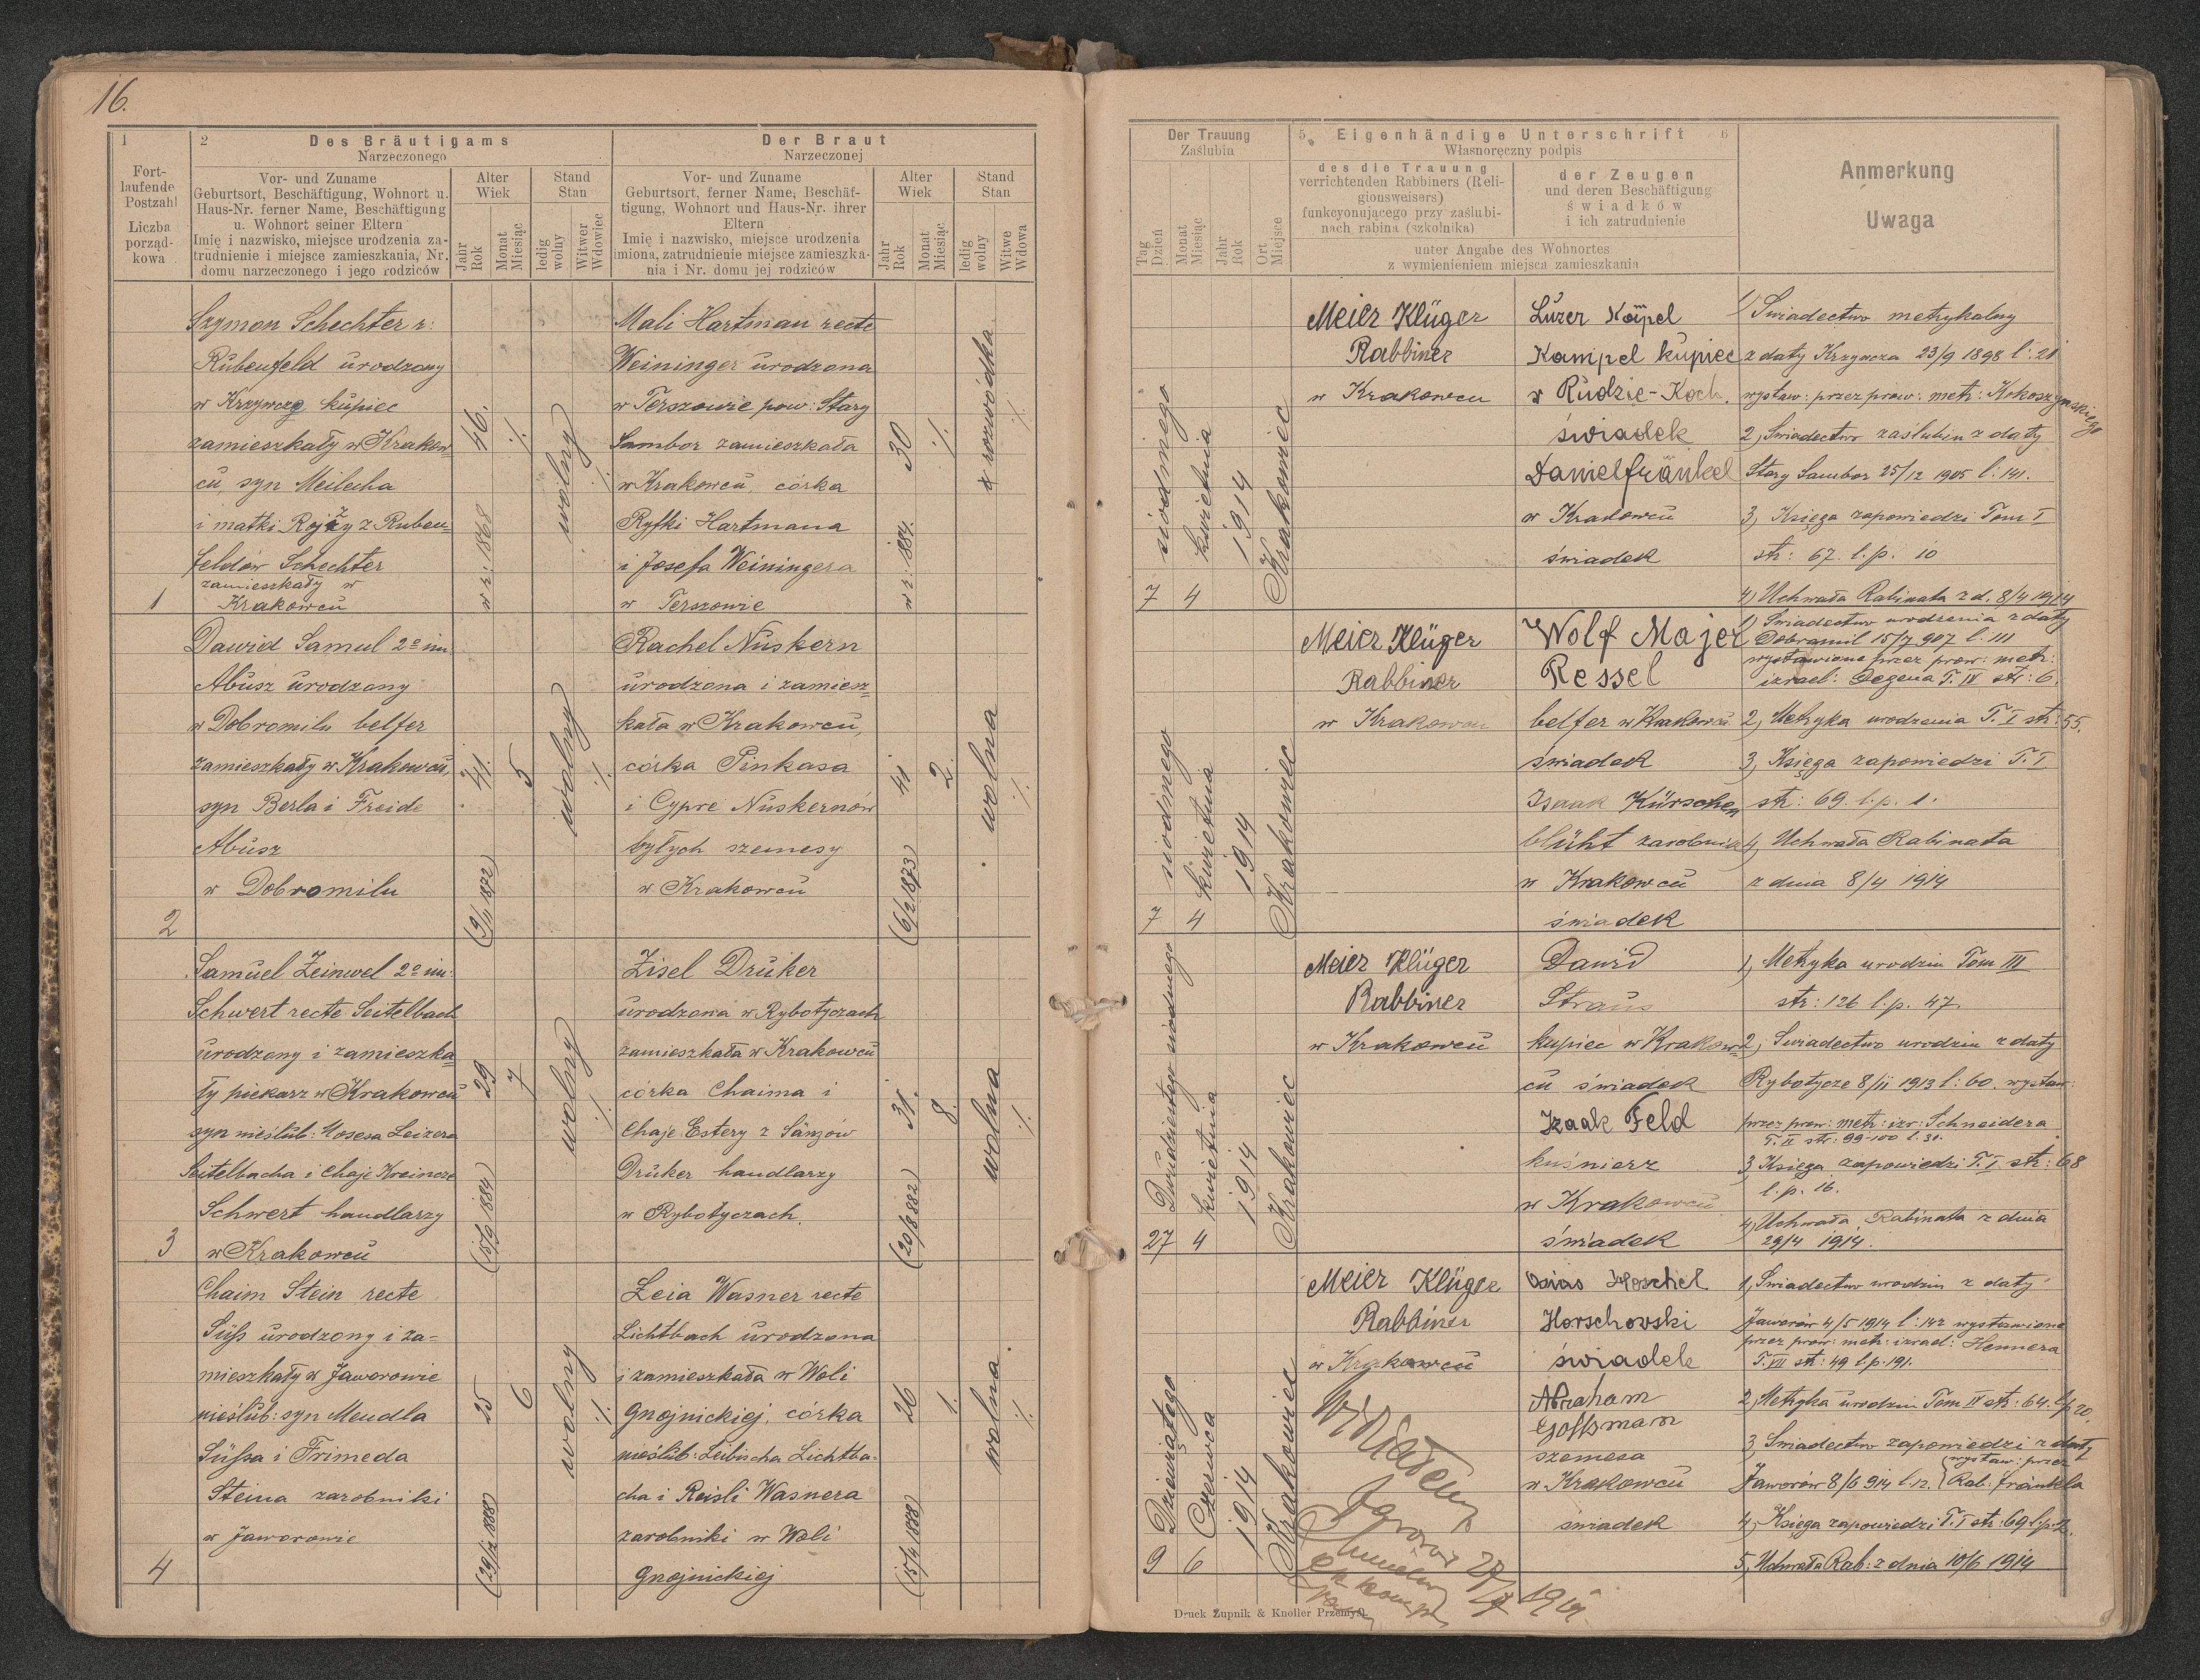 16.
1
Fort-
laufende
Postzahl
Liczba
porząd-
kowa
2
Des Bräutigams
Narzeczonego
Vor- und Zuname
Geburtsort, Beschäftigung, Wohnort u.
Haus-Nr. ferner Name, Beschäftigung
u. Wohnort seiner Eltern
Imię i nazwisko, miejsce urodzenia za-
trudnienie i miejsce zamieszkania, Nr.
domu narzeczonego i jego rodziców
Alter
Wiek
Jahr
Rok
Monat
Miesiąc
Stand
Stan
ledig
wolny
Witwer
Wdowiec
Der Braut
Narzeczonej
Vor- und Zuname
Geburtsort, ferner Name, Beschäf-
tigung, Wohnort und Haus-Nr. ihrer
Eltern
Imię i nazwisko, miejsce urodzenia
imiona, zatrudnienie miejsce zamieszka-
nia i Nr. domu jej rodziców
Alter
Wiek
Jahr
Rok
Monat
Miesiąc
Stand
Stan
ledig
wolny
Witwe
Wdowa
Der Trauung
Zaślubin
Tag
Dzień
Monat
Miesiąc
Jahr
Rok
Ort
Miejsce
5. Eigenhändige Unterschrift 6
Własnoręczny podpis
des die Trauung
verrichtenden Rabbiners (Reli-
gionsweisers)
funkcyonującego przy zaślubi-
nach rabina (szkolnika)
der Zeugen
und deren Beschäftigung
świadków
i ich zatrudnienie
unter Angabe des Wohnortes
z wymienieniem miejsca zamieszkania
Anmerkung
Uwaga
1
Szymon Schechter r:
Rubenfeld urodzony
w Krzywczy kupiec
zamieszkały w Krakow-
cu, syn Meilecha
i matki Rojzy z Ruben-
feldów Schechter
zamieszkały w
Krakowcu
46.
w r: 1868
wolny
Mali Hartman recte
Weininger urodzona
w Terszowie pow: Stary
Sambor zamieszkała
w Krakowcu, córka
Ryfki Hartmana
i Josefa Weiningera
w Terszowie
30
w r: 1884.
rozwódka
siódmego
7
kwietnia
4
1914
Krakowiec
Meier Klüger
Rabbiner
w Krakowcu
Luzer
Kampel kupiec
w Rudzie-Koch.
świadek
Daniel Fränkel
w Krakowcu
świadek
1) Świadectwo metrykalny
z daty Krzywcza 23/9 1898 l: 21
wystaw: przez prow: metr: Kokoszynskiego
2, Świadectwo zaślubin z daty
Stary Sambor 25/12 1905 l: 141.
3, Księga zapowiedzi Tom I
str: 67. l.p. 10
4) Uchwała Rabinata z d. 8/4 1914
2
Dawid Samul 2º im.
Abusz urodzony
w Dobromilu belfer
zamieszkały w Krakowcu,
syn Berla i Freide
Abusz
w Dobromilu
41.
5
(9/11 1872)
wolny
Rachel Nuskern
urodzona i zamiesz-
kała w Krakowcu,
córka Pinkasa
i Cypre Nuskernów
byłych szemesy
w Krakowcu
41
2.
(6/2 1873)
wolna
siódmego
7
kwietnia
4
1914
Krakowiec
Meier Klüger
Rabbiner
w Krakowcu
Wolf Majer
Ressel
belfer w Krakowcu
świadek
Isaak Kürschen
blüht zarobnik
w Krakowcu
świadek
1) Świadectwo urodzenia z daty
Dobromil 15/7 907 l. 111
wystawione przez prow: metr:
izrael: Degena T. IV str: 6.
2, Metryka urodzenia T. I str: 55.
3, Księga zapowiedzi T. I
str: 69. l.p. 1.
4, Uchwała Rabinata
z dnia 8/4 1914
3
Samuel Zeinwel 2º im:
Schwert recte Seitelbach
urodzony i zamieszka-
ły piekarz w Krakowcu
syn nieślub: Mosesa Leizera
Seitelbacha i Chaje Kreincze
Schwert handlarzy
w Krakowcu
29
7
(15/9 1884)
wolny
Zisel Drüker
urodzona w Rybotyczach
zamieszkała w Krakowcu
córka Chaima i
Chaje Estery z Sänzów
Drüker handlarzy
w Rybotyczach.
31.
8.
(20/8 882)
wolna
Dwudziestego siódmego
27
kwietnia
4
1914
Krakowiec
Meier Klüger
Rabbiner
w Krakowcu
Dawid
Straus
kupiec w Krakow-
cu świadek
Izaak Feld
kuśnierz
w Krakowcu
świadek
1, Metryka urodzin Tom III
str: 126 l.p. 47
2, Świadectwo urodzin z daty
Rybotycze 8/11 1913 l: 60. wystaw:
przez prow: metr: izr: Schneidera
T. II str: 99-100 l. 31.
3, Księga zapowiedzi T. I str: 68
l.p. 16.
4, Uchwała Rabinata z dnia
29/4 1914.
4
Chaim Stein recte
Süß urodzony i za-
mieszkały w Jaworowie
nieślub: syn Mendla
Süßa i Frimeda
Steina zarobniki
w Jaworowie
25
6
(29/12 1888)
wolny
Leia Wasner recte
Lichtbach urodzona
i zamieszkała w Woli
Gnojnickiej, córka
nieślub: Leibischa Lichtba-
cha i Reisli Wasnera
zarobniki w Woli
Gnojnickiej
26
wolna
Dziewiątego
9
Czerwca
6
1914
Krakowiec
Meier Klüger
Rabbiner
w Krakowcu
Osias Heschel
Horschowski
świadek
Abraham
Goffsman
szemesa
w Krakowcu
świadek
1, Świadectwo urodzin z daty
Jaworów 4/5 1914 l: 142 wystawione
przez prow: metr: izrael: Hennera
T. VII str: 49 l.p. 191.
2, Metryka urodzin Tom IV str: 64. l.p. 20.
3, Świadectwo zapowiedzi z daty
Jaworów 8/6 914 l. 12. (wystaw: przez
Rab: Fränkla
4, Księga zapowiedzi T. I str: 69. l.p. 2.
5, Uchwała Rab: z dnia 10/6 1914
Widziałem
Druck Żupnik & Knoller Przemyśl.